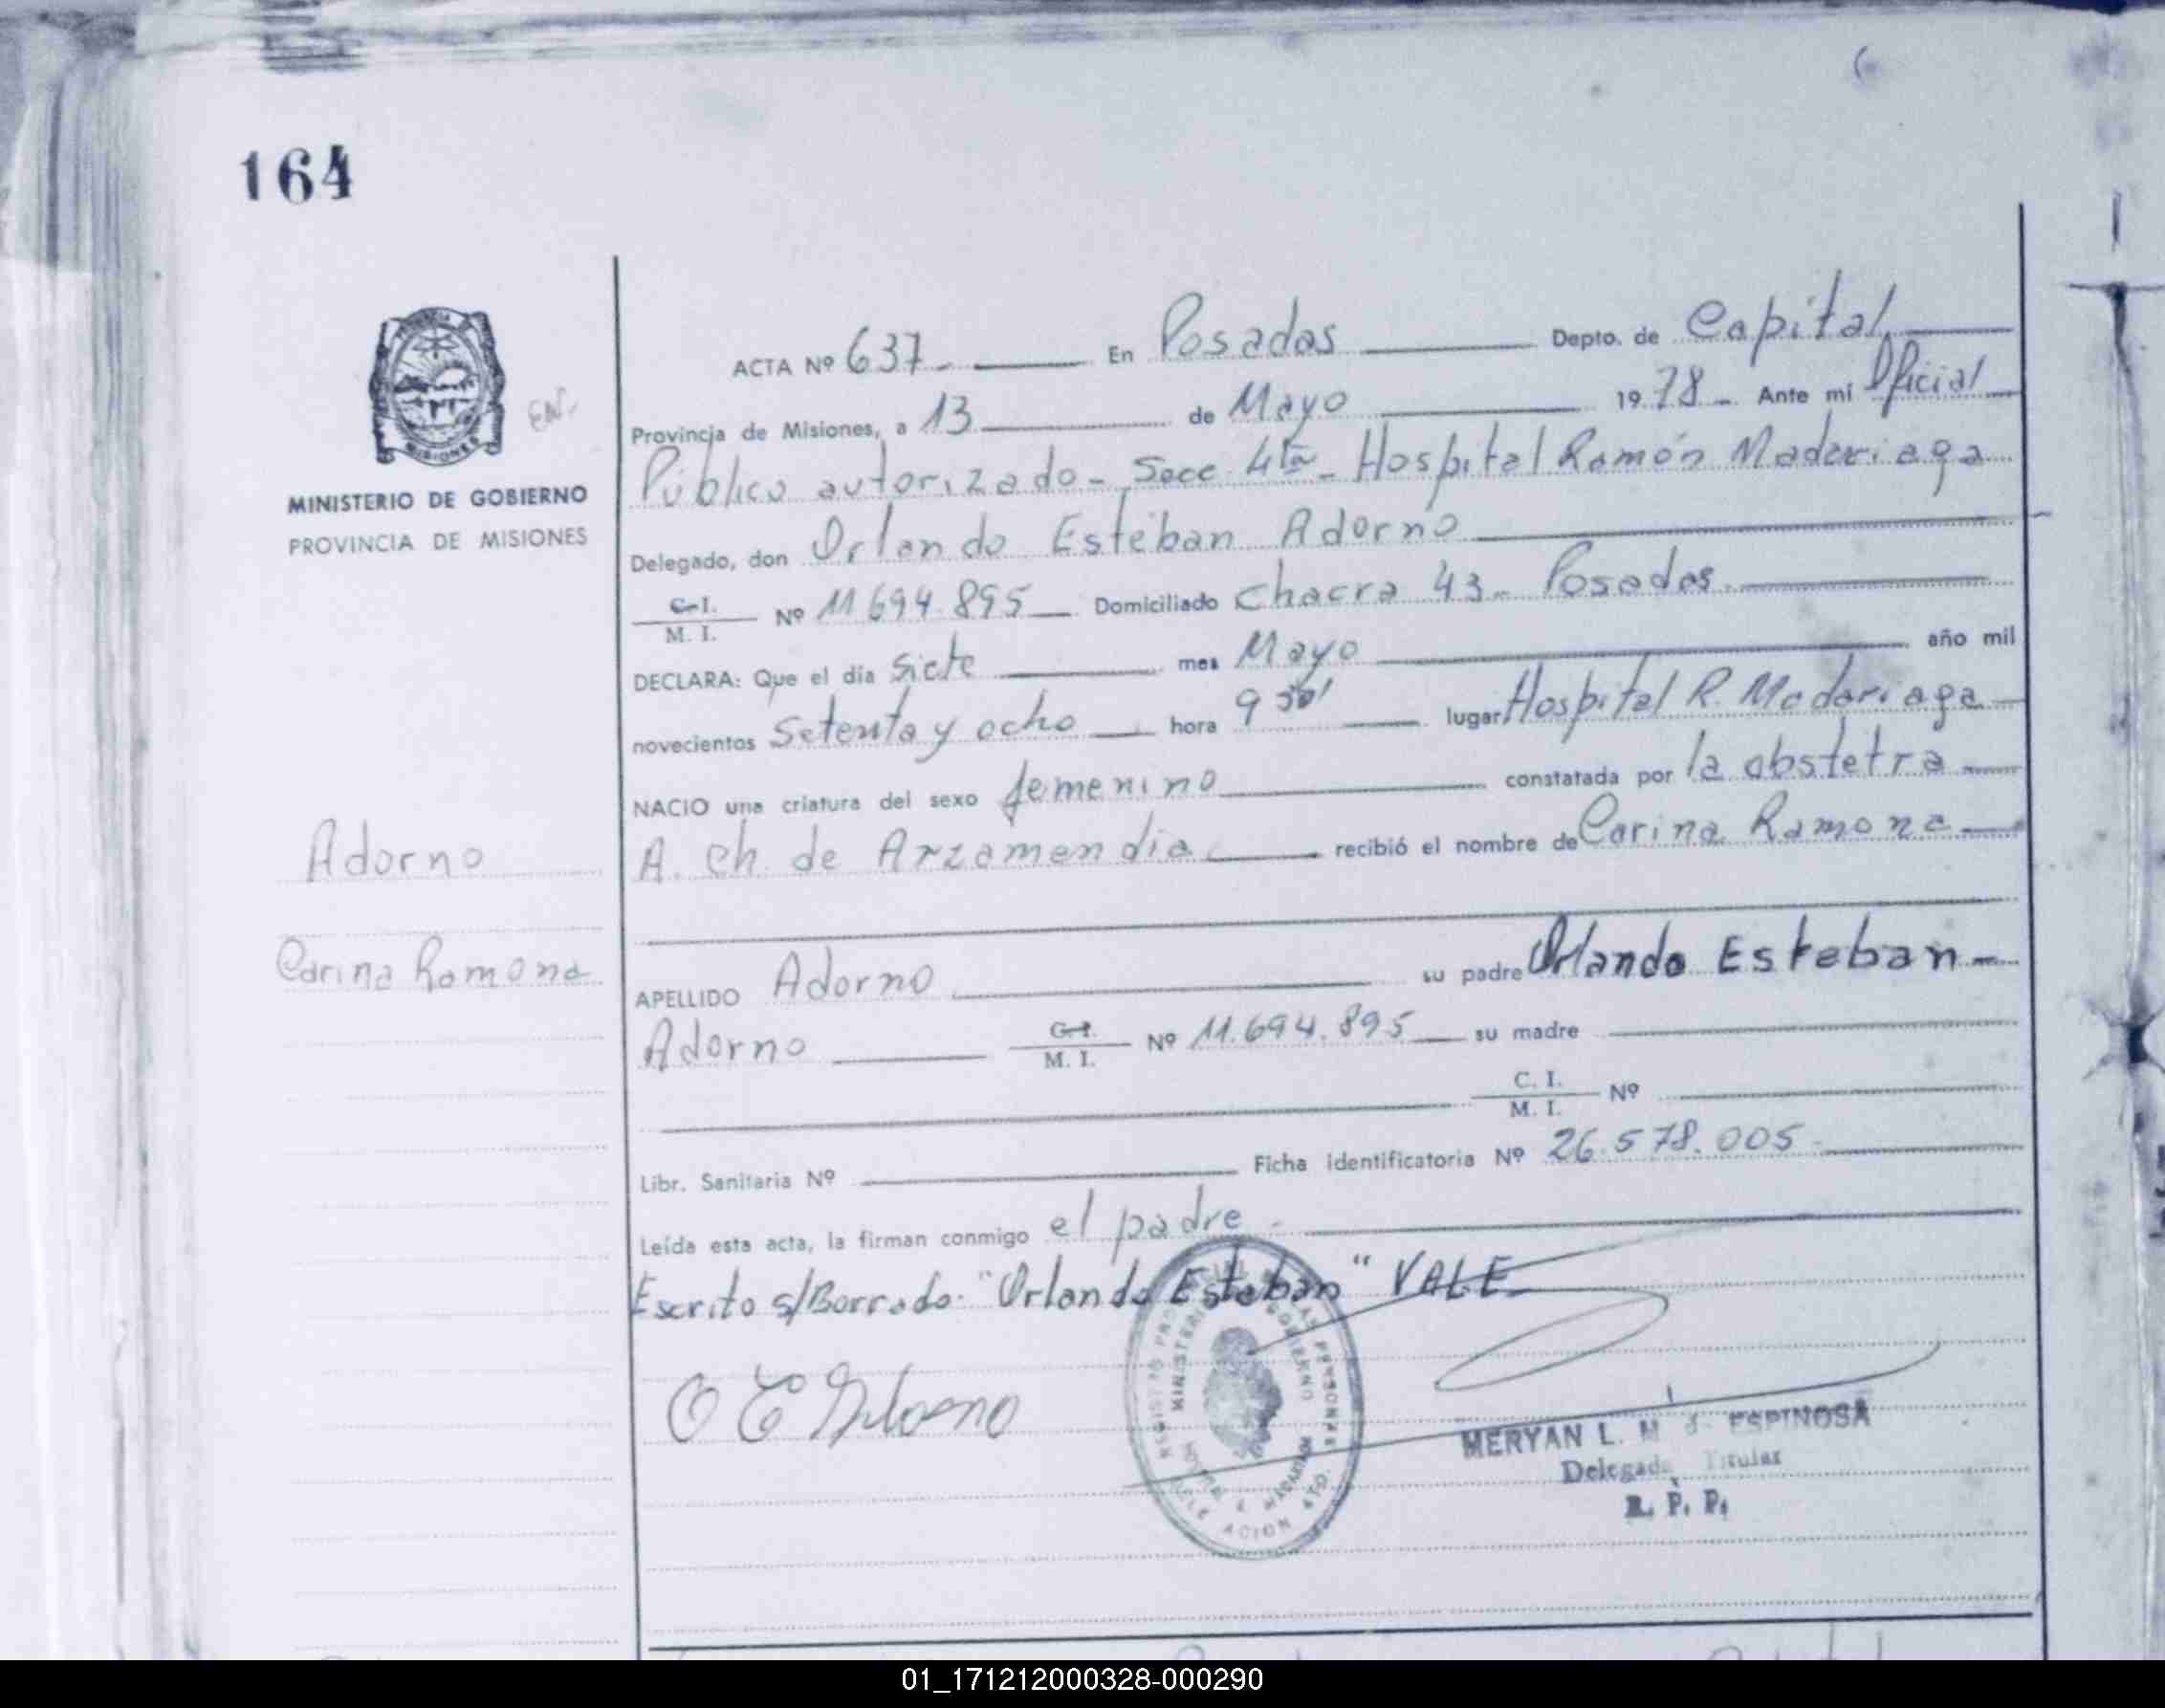 164
MINISTERIO DE GOBIERNO
PROVINCIA DE MISIONES
ACTA Nº 637 En Posadas Depto. de Capital
Provincia de Misiones, a 13 de Mayo 1978 Ante mi Oficial
Público autorizado - Secc 4ta - Hospital Ramón Madariaga
Delegado, don Orlando Esteban Adorno
C.I. / M. I. Nº 11.694.895 Domiciliado Chacra 43 - Posadas
DECLARA: Que el día siete mes Mayo año mil
novecientos Setenta y ocho hora 9 30' lugar Hospital R. Madariaga
NACIO una criatura del sexo femenino constatada por la obstetra
A. Ch. de Arzamendia recibió el nombre de Carina Ramona
Adorno
Carina Ramona
APELLIDO Adorno su padre Orlando Esteban
Adorno C.I. / M. I. Nº 11.694.895 su madre
C. I. / M. I. Nº
Libr. Sanitaria Nº Ficha identificatoria Nº 26.578.005
Leída esta acta, la firman conmigo el padre.
Escrito s/Borrado: "Orlando Esteban" VALE
O E Adorno
MERYAN L. M ESPINOSA
Delegada Titular
R. P. P.
01_171212000328-000290